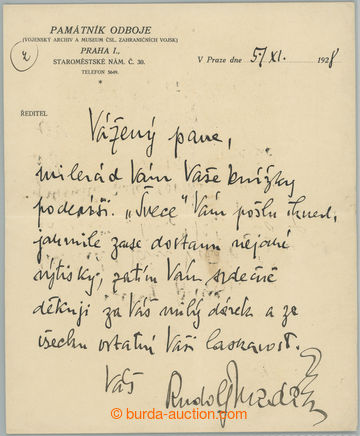 PAMÁTNÍK ODBOJE
(VOJENSKÝ ARCHIV A MUSEUM ČSL. ZAHRANIČNÍCH VOJSK)
PRAHA I.,
STAROMĚSTSKÉ NÁM. Č. 30.
TELEFON 5649.
V Praze dne 5./XI. 1928
ŘEDITEL
Vážený pane,
milerád Vám Vaše knížky
podepíši. „Švece" Vám pošlu ihned,
jakmile zase dostanu nějaké
výtisky, zatím Vám srdečně
děkuji za Váš milý dárek a za
všechnu ostatní Vaši laskavost.
Váš
Rudolf Medek
burda-auction.com